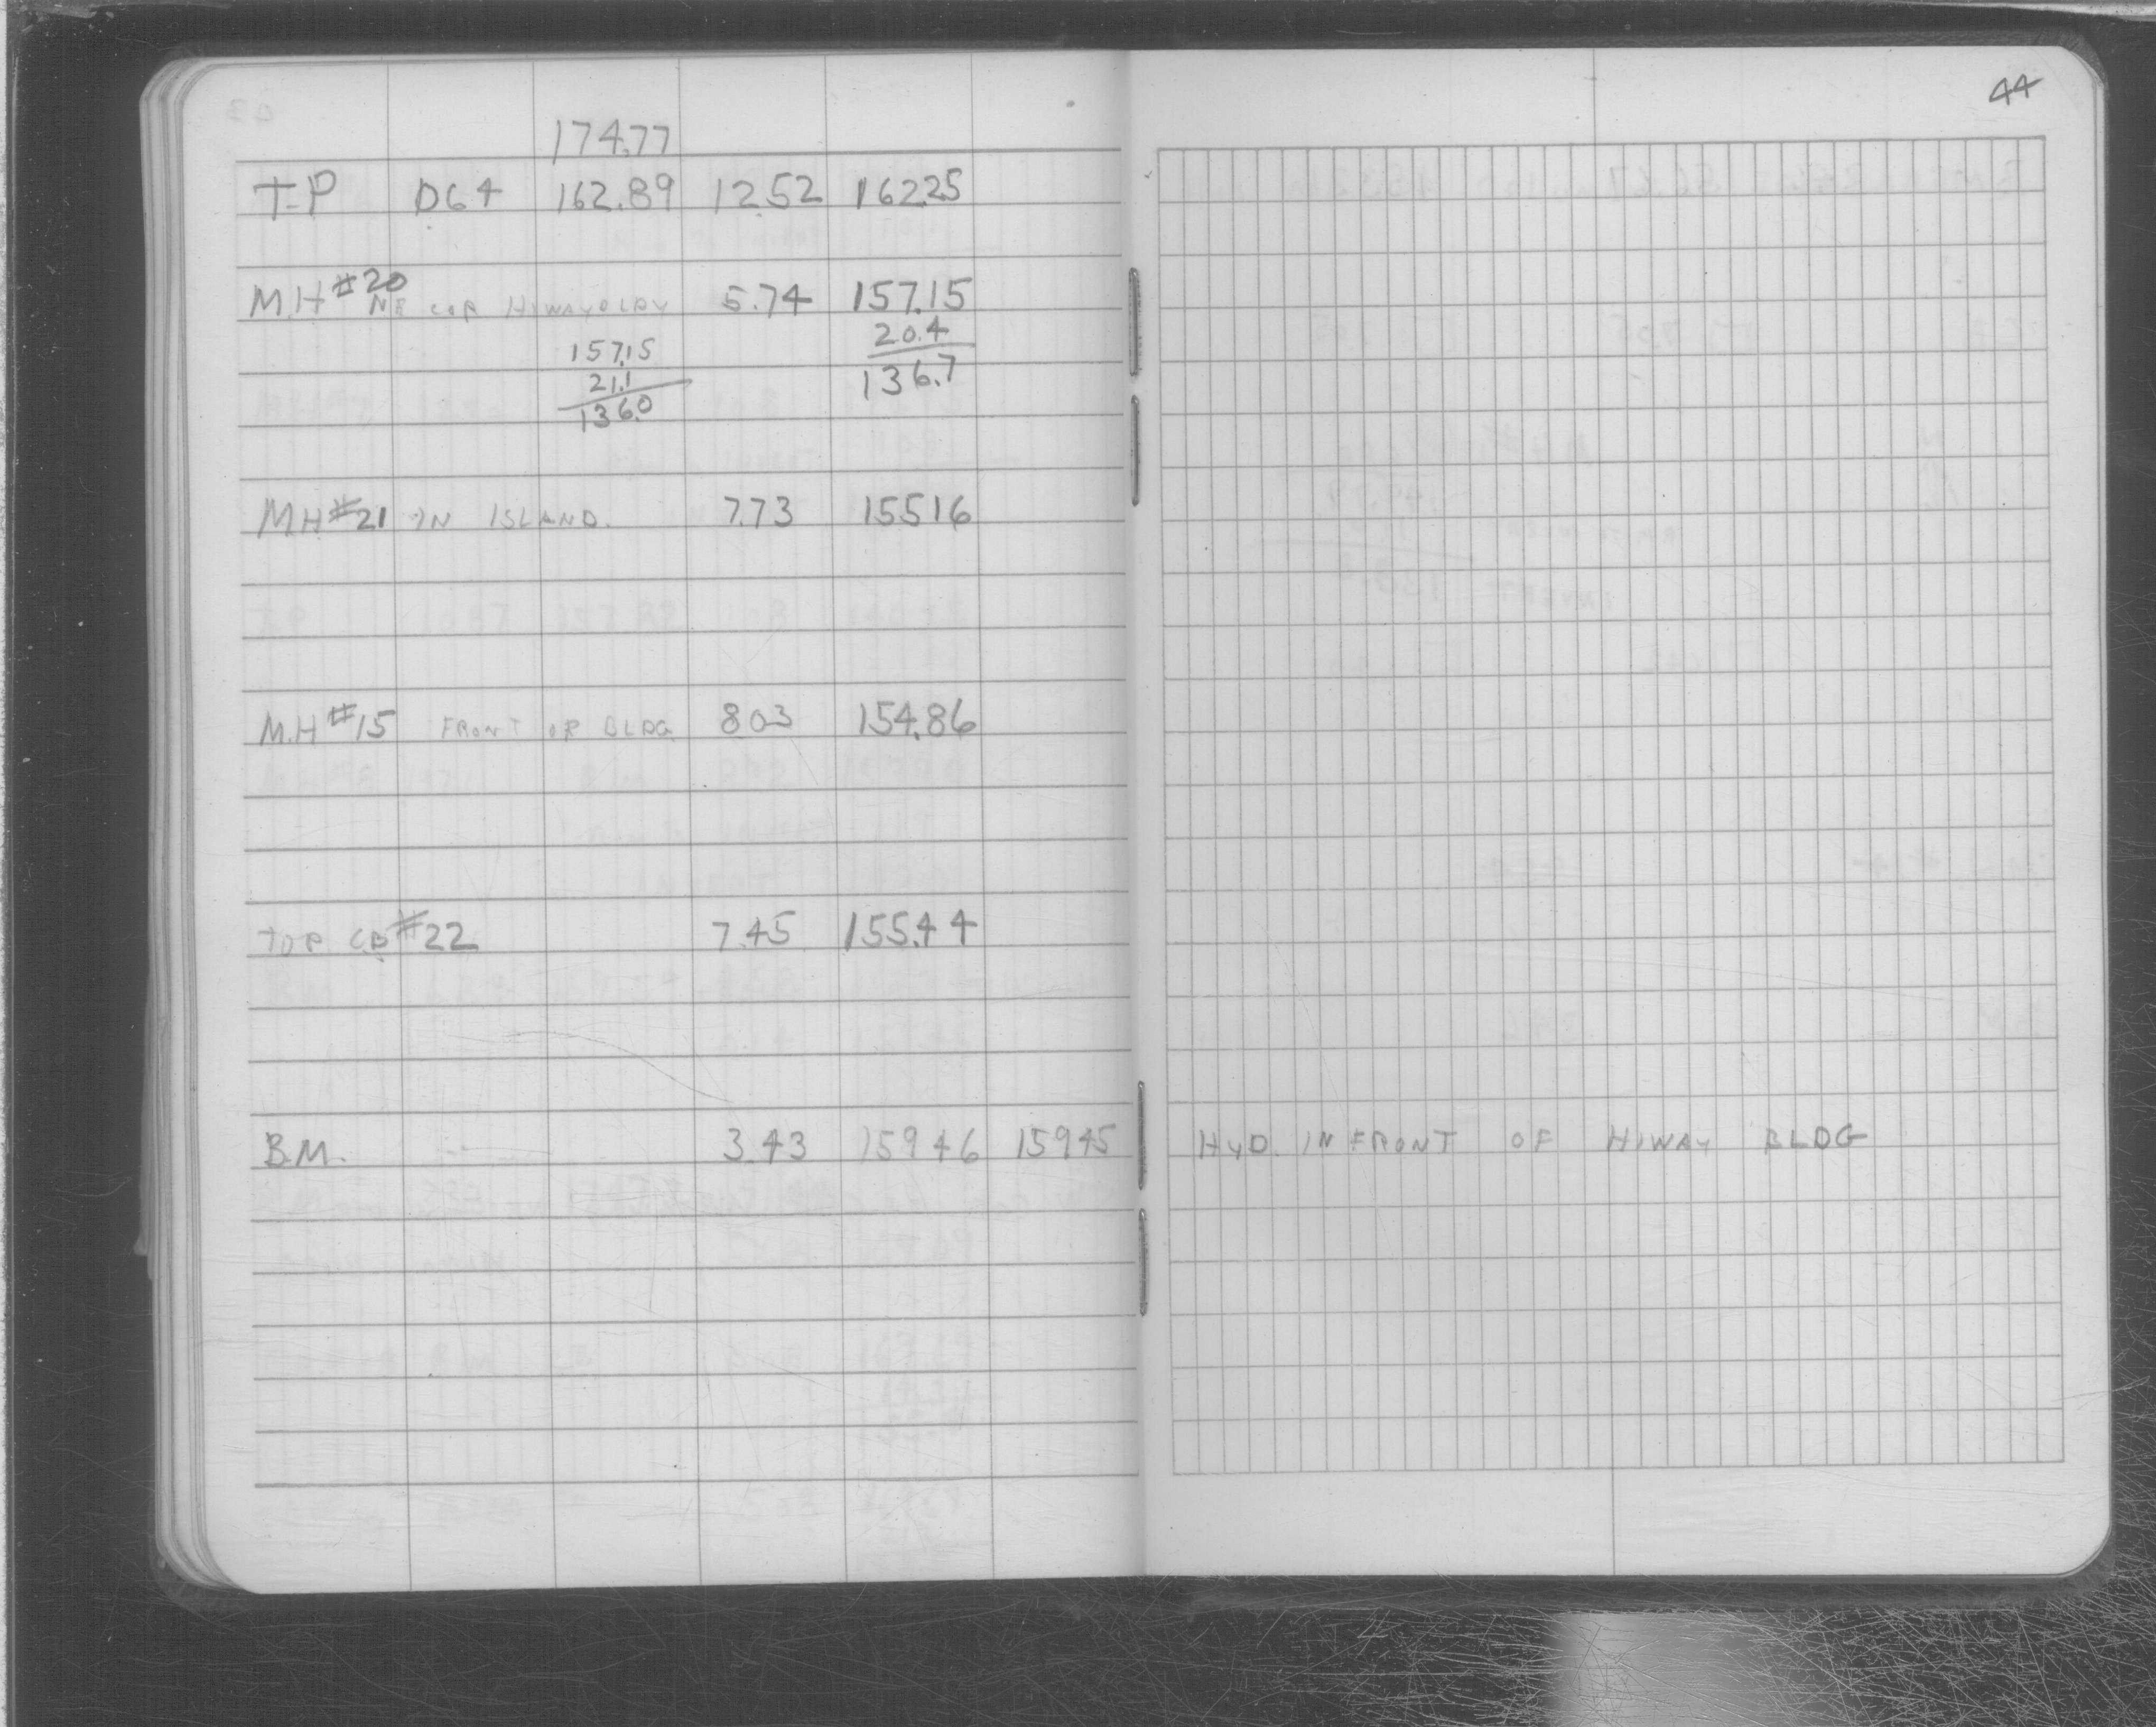 44
174.77
T.P 0.64 162.89 12.52 162.25
M.H #20 NE COR HIWAY BLDG 5.74 157.15
157.15 20.4
21.1 136.7
136.0
MH #21 IN ISLAND. 7.73 155.16
M.H #15 FRONT OF BLDG 8.03 154.86
TOP C.B #22 7.45 155.44
B.M. 3.43 159.46 159.45 HYD. IN FRONT OF HIWAY BLDG